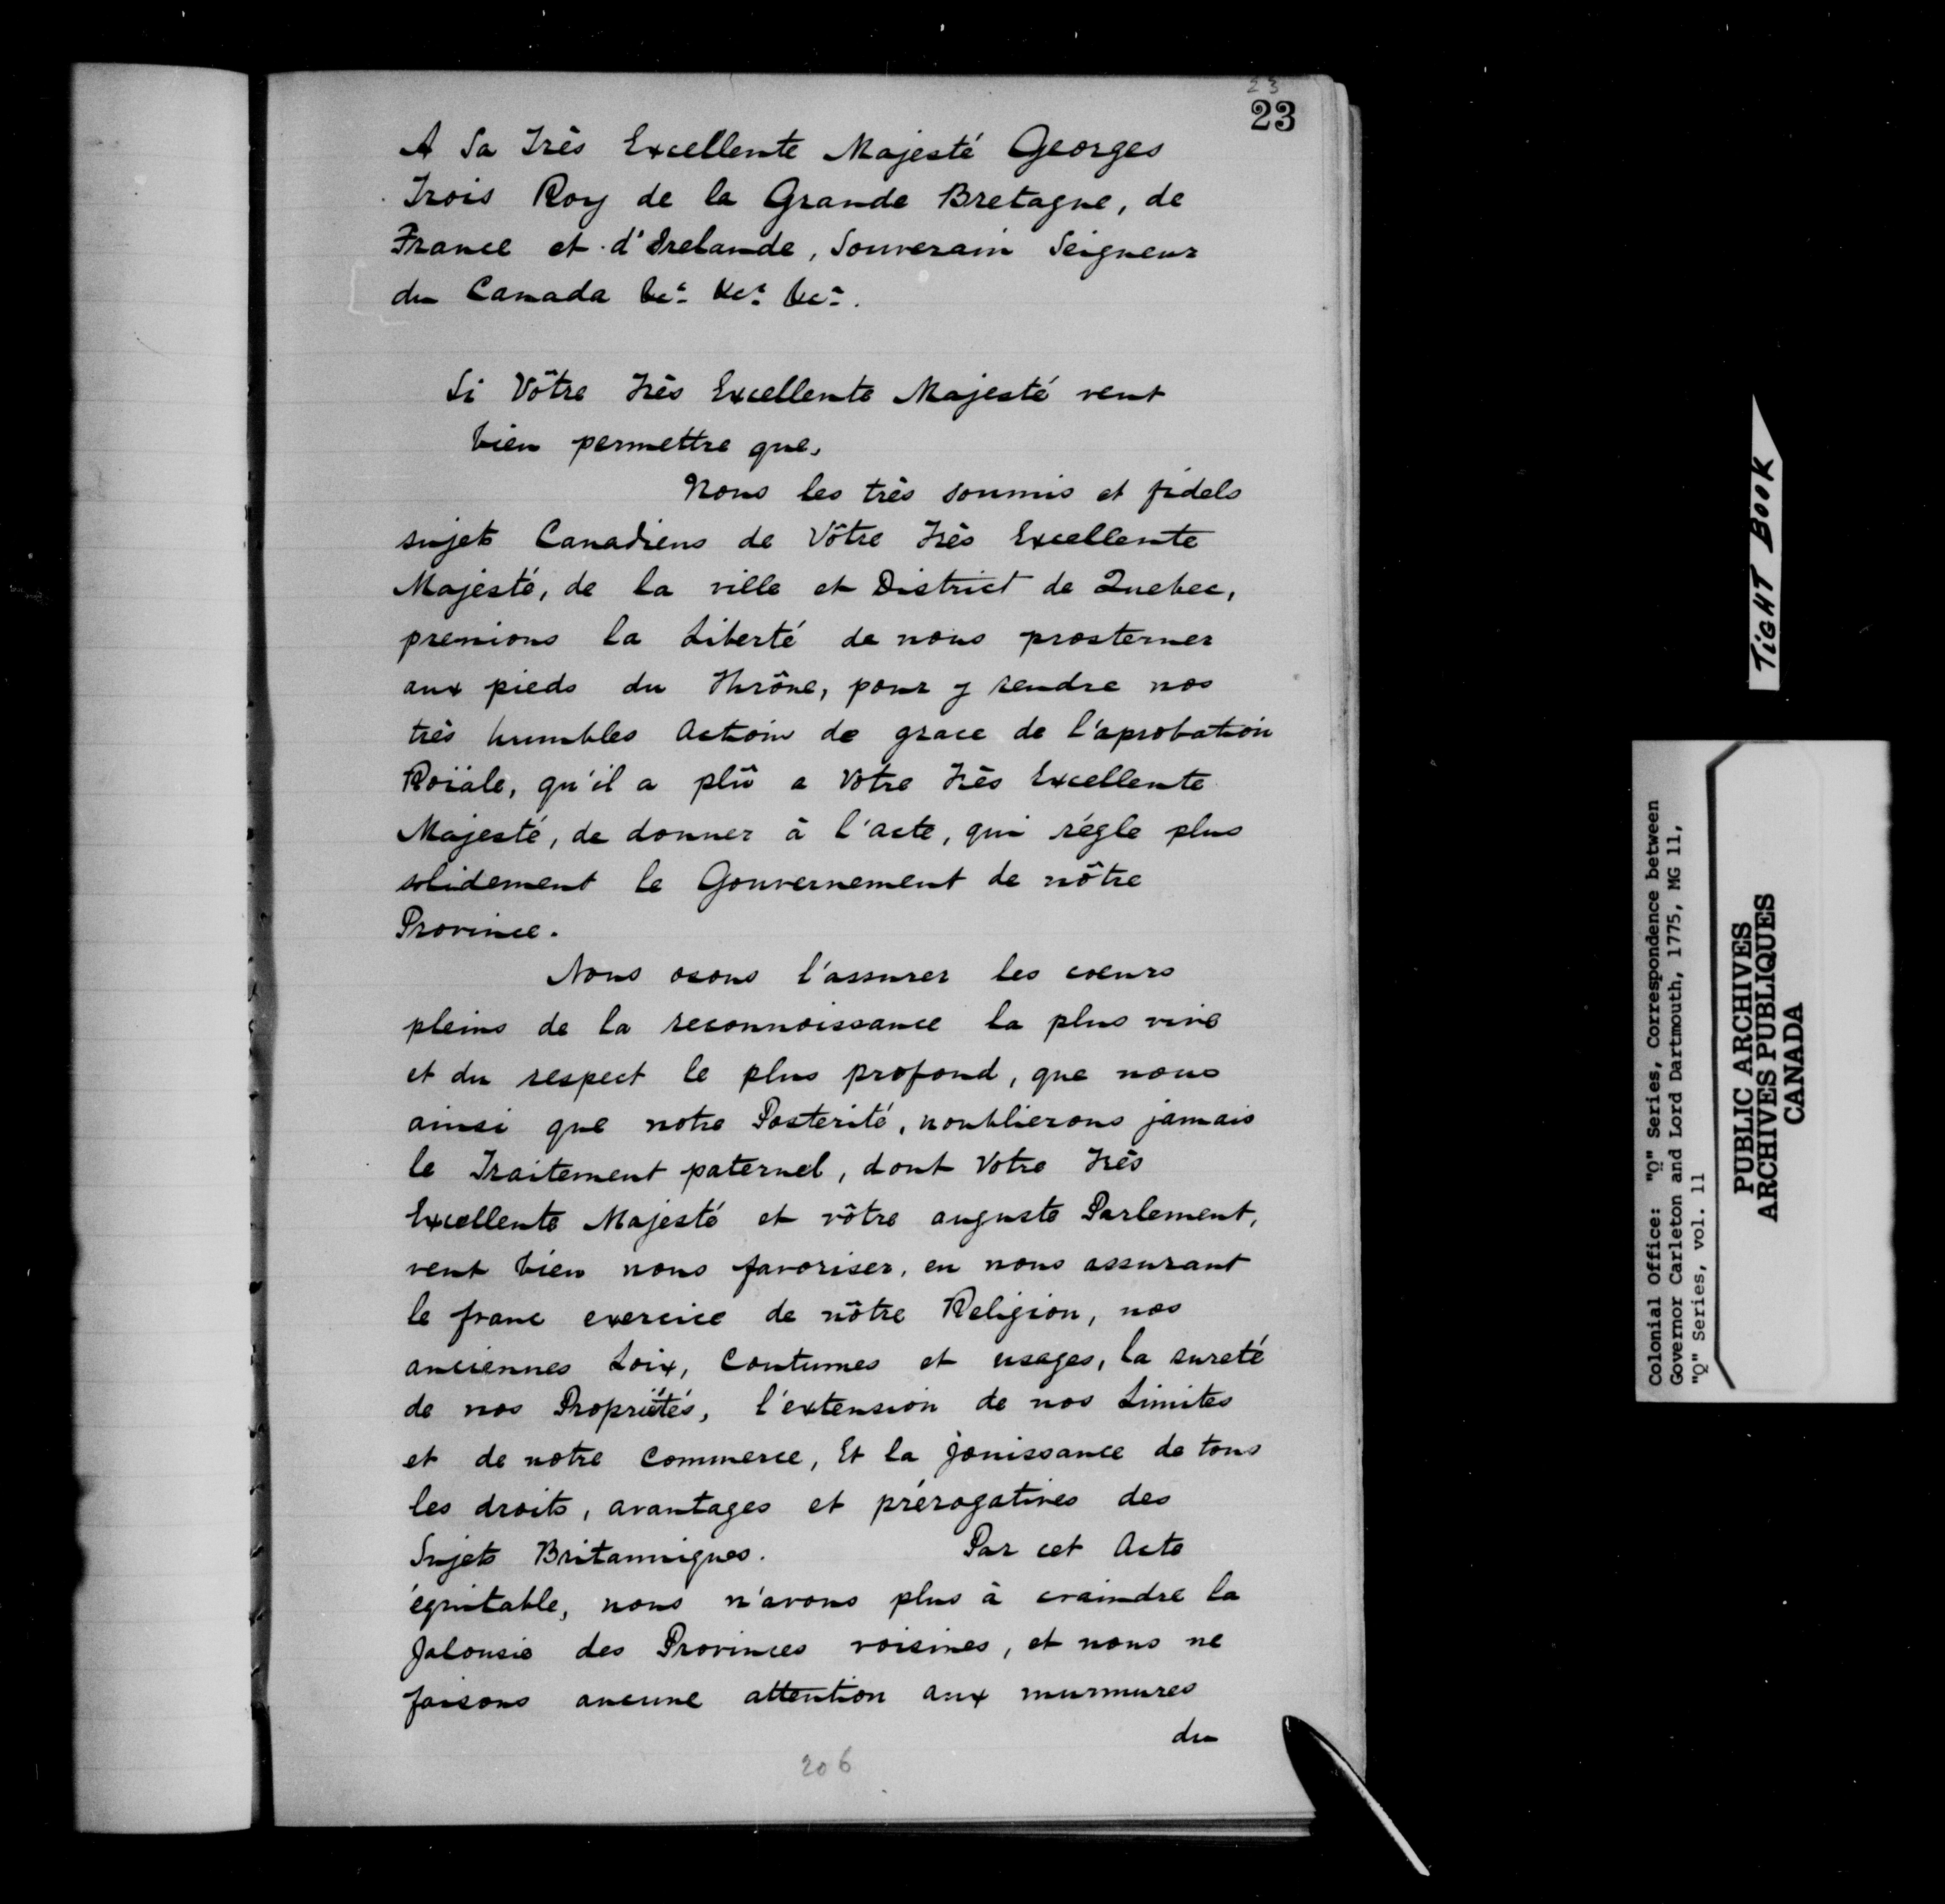 23
23
A Sa Très Excellente Majesté Georges
Trois Roy de la Grande Bretagne, de
France et d'Irelande, Souverain Seigneur
du Canada &c.ª &c.ª &c.ª.
Si Vôtre Très Excellente Majesté veut
bien permettre que,
Nous les très soumis et fidels
sujets Canadiens de Vôtre Très Excellente
Majesté, de la ville et District de Quebec,
prenions la Liberté de nous prosterner
aux pieds du Thrône, pour y rendre nos
très humbles Action de grace de l'aprobation
Roïale, qu'il a plû a Votre Très Excellente
Majesté, de donner à l'acte, qui régle plus
solidement le Gouvernement de nôtre
Province.
Nous osons l'assurer les coeurs
pleins de la reconnoissance la plus vive
et du respect le plus profond, que nous
ainsi que notre Posterité, noublierons jamais
le Traitement paternel, dont Votre Très
Excellente Majesté et vôtre auguste Parlement,
veut bien nous favoriser, en nous assurant
le franc exercice de nôtre Religion, nos
anciennes Loix, Coutumes et usages, la sureté
de nos Propriëtés, l'extension de nos Limites
et de notre Commerce, Et la jouissance de tous
les droits, avantages et prérogatives des
Sujets Britanniques. Par cet Acte
équitable, nous n'avons plus à craindre la
Jalousie des Provinces voisines, et nous ne
faisons aucune attention aux murmures
du
206
TIGHT BOOK
Colonial Office: "Q" Series, Correspondence between
Governor Carleton and Lord Dartmouth, 1775, MG 11,
"Q" Series, vol. 11
PUBLIC ARCHIVES
ARCHIVES PUBLIQUES
CANADA